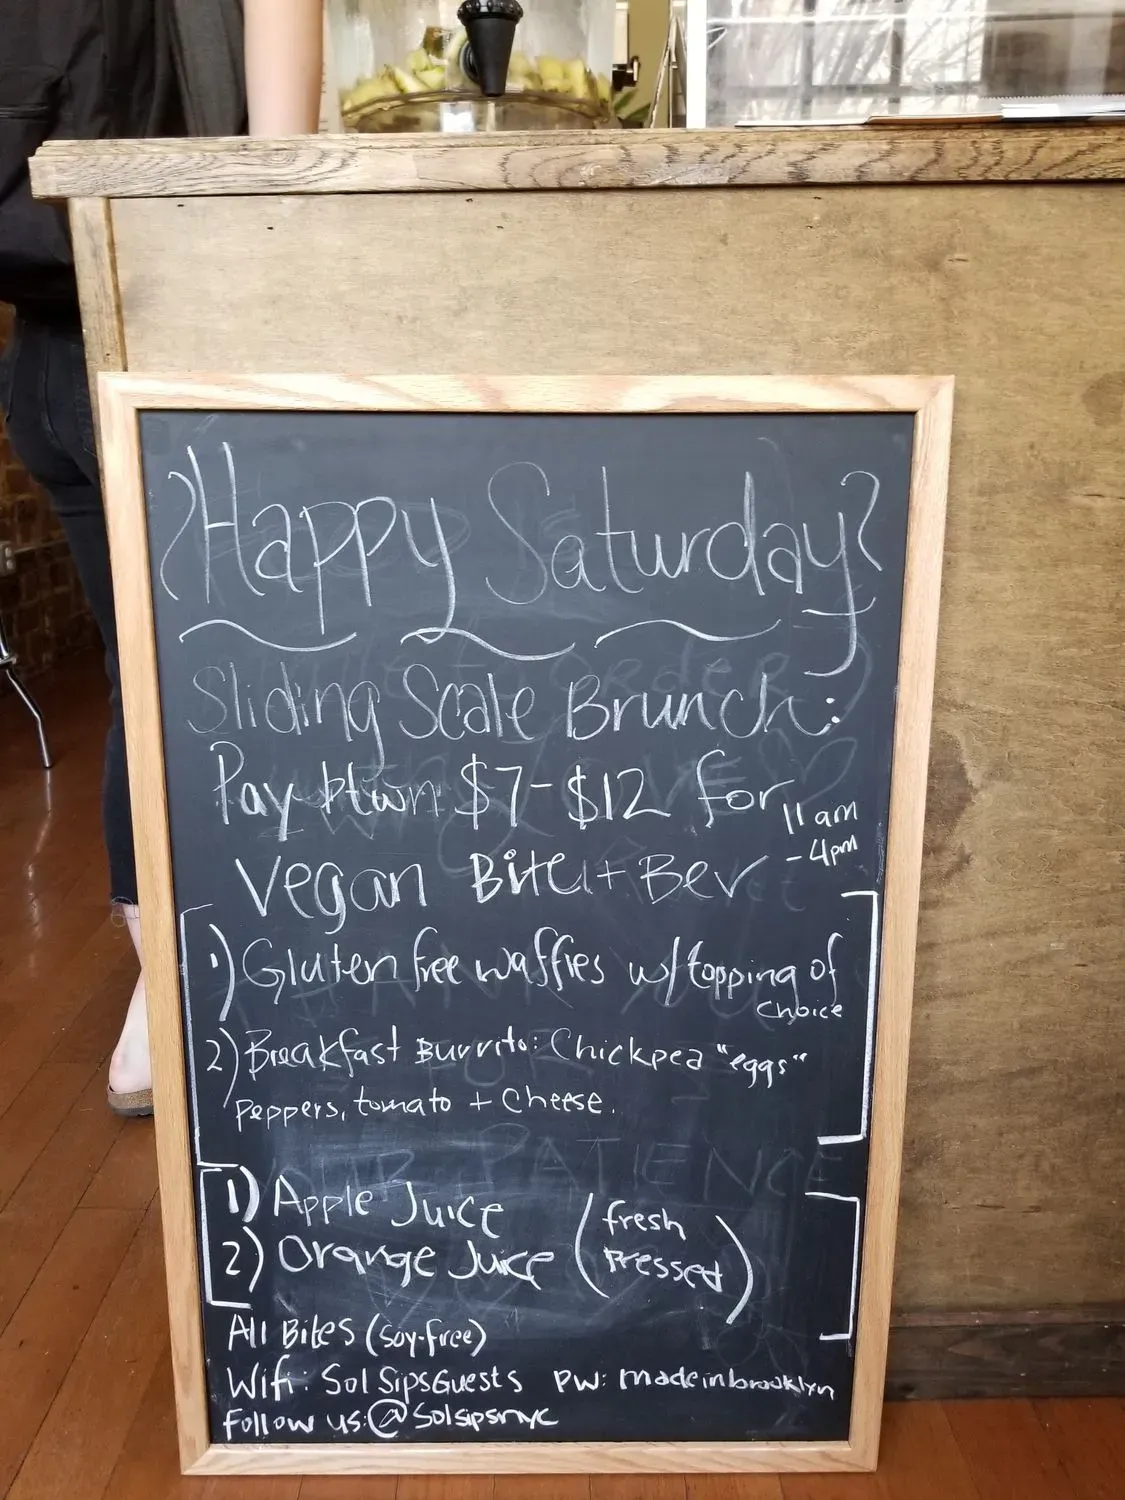 Happy Saturday
Sliding Scale Brunch:
Pay btwn $7-$12 for 11am
-4pm
vegan Bite + Bev
1) Gluten free waffles w/ topping of
choice
2) Breakfast Burrito: Chickpea "eggs"
Peppers, tomato + Cheese.
1) Apple Juice (fresh
2) Orange Juice Pressed)
All Bites (soy-free)
Wifi: SolSipsGuests PW: madeinbrooklyn
Follow us: @solsipsnyc